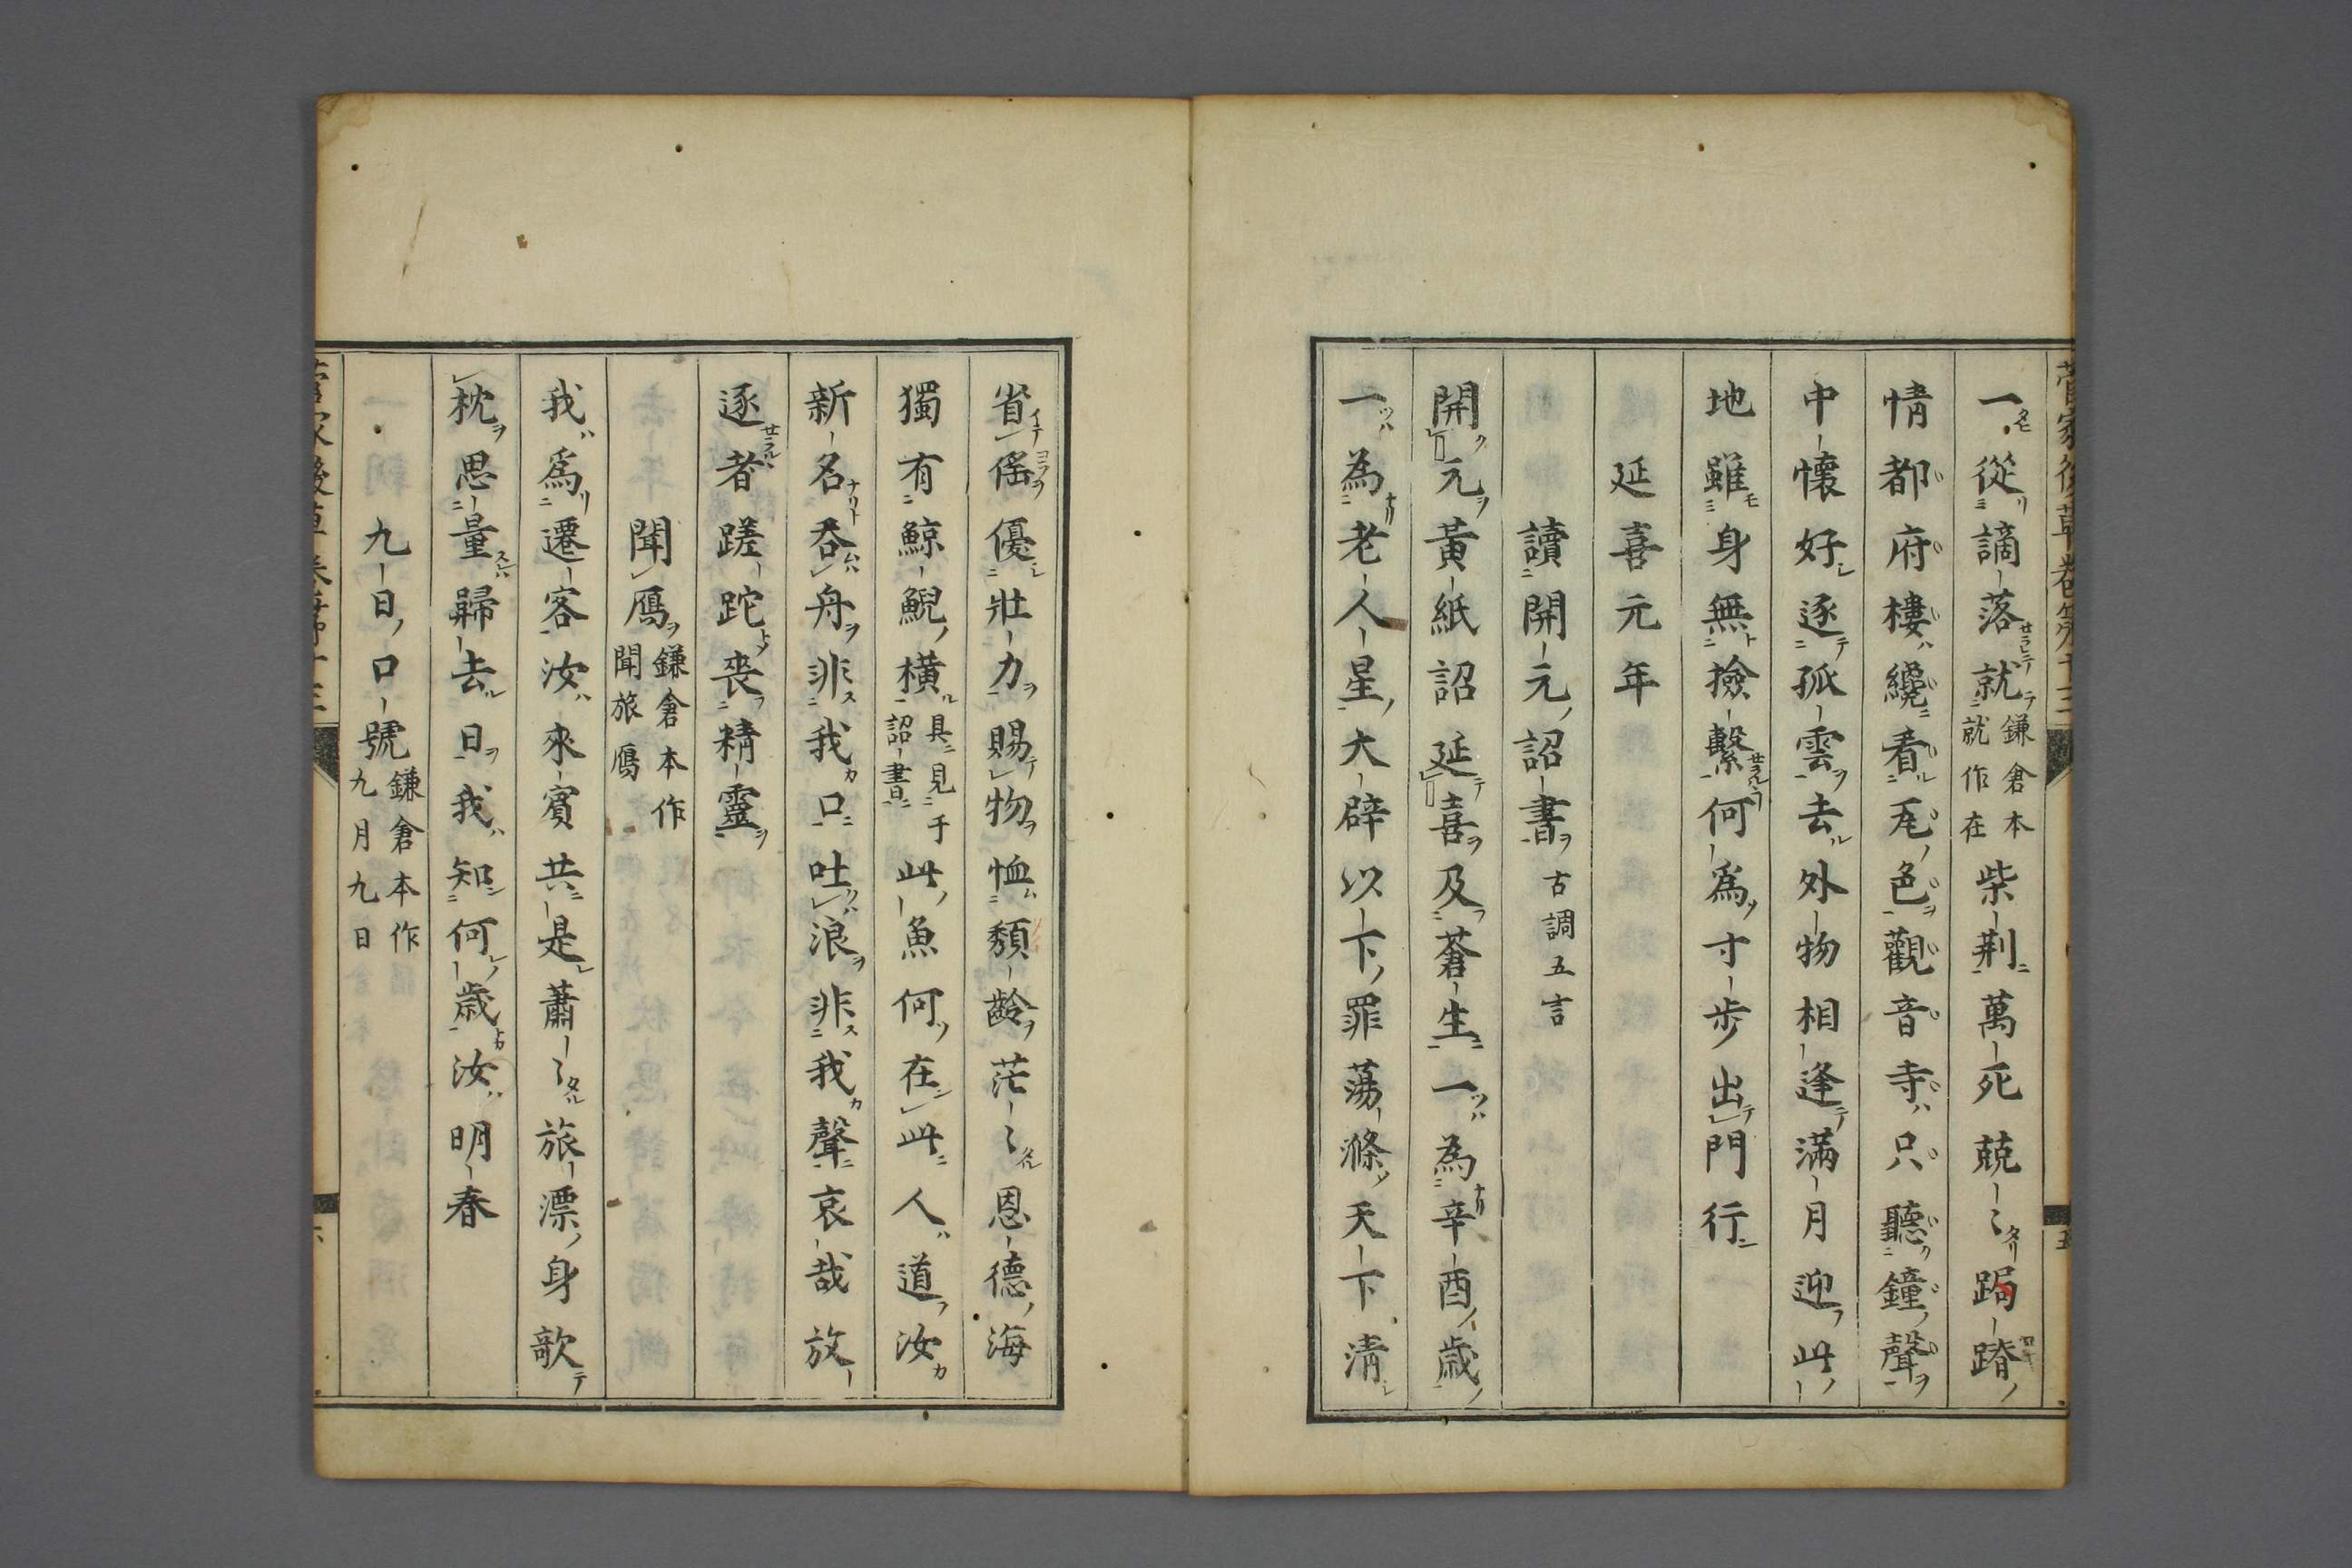 一從謫落就鎌倉本就作在柴荆萬死兢〻跼蹐
情都府樓纔看瓦色觀音寺只聽鐘聲
中懷好逐孤雲去外物相逢滿月迎此
地雖身無撿繫何爲寸步出門行
延喜元年
讀開元詔書古調五言
開元黃紙詔延喜及蒼生一為辛酉歳
一為老人星大辟以下罪蕩滌天下淸
省徭優壯力賜物恤頽齡茫〻恩德海
獨有鯨鯢橫具見于詔書此魚何在此人道汝
新名吞舟非我口吐浪非我聲哀哉放
逐者蹉跎喪精靈
聞鴈鎌倉本作聞旅鴈
我爲遷客汝來賓共是蕭〻旅漂身欹
枕思量歸去日我知何歳汝明春
九日口號鎌倉本作九月九日